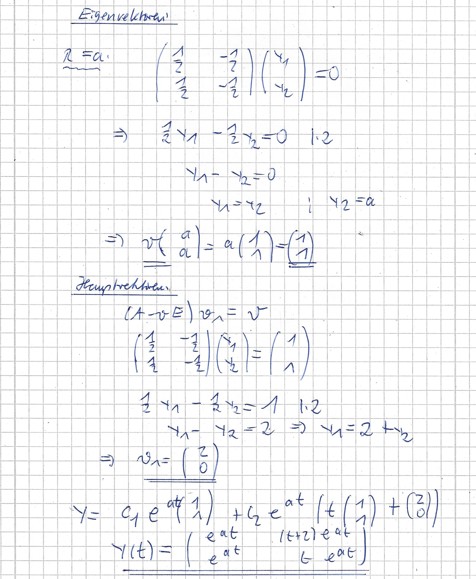 Eigenvektoren:
λ = a: ( 1/2 -1/2 ; 1/2 -1/2 ) ( y₁ ; y₂ ) = 0
⇒ 1/2 y₁ - 1/2 y₂ = 0 |·2
y₁ - y₂ = 0
y₁ = y₂ ; y₂ = a
⇒ v ( a ; a ) = a ( 1 ; 1 ) = ( 1 ; 1 )
Hauptvektoren:
(A - vE) v₁ = v
( 1/2 -1/2 ; 1/2 -1/2 ) ( y₁ ; y₂ ) = ( 1 ; 1 )
1/2 y₁ - 1/2 y₂ = 1 |·2
y₁ - y₂ = 2 ⇒ y₁ = 2 + y₂
⇒ v₁ = ( 2 ; 0 )
Y = c₁ e^{at} ( 1 ; 1 ) + c₂ e^{at} ( t ( 1 ; 1 ) + ( 2 ; 0 ) )
Y(t) = ( e^{at} (t+2) e^{at} ; e^{at} t e^{at} )